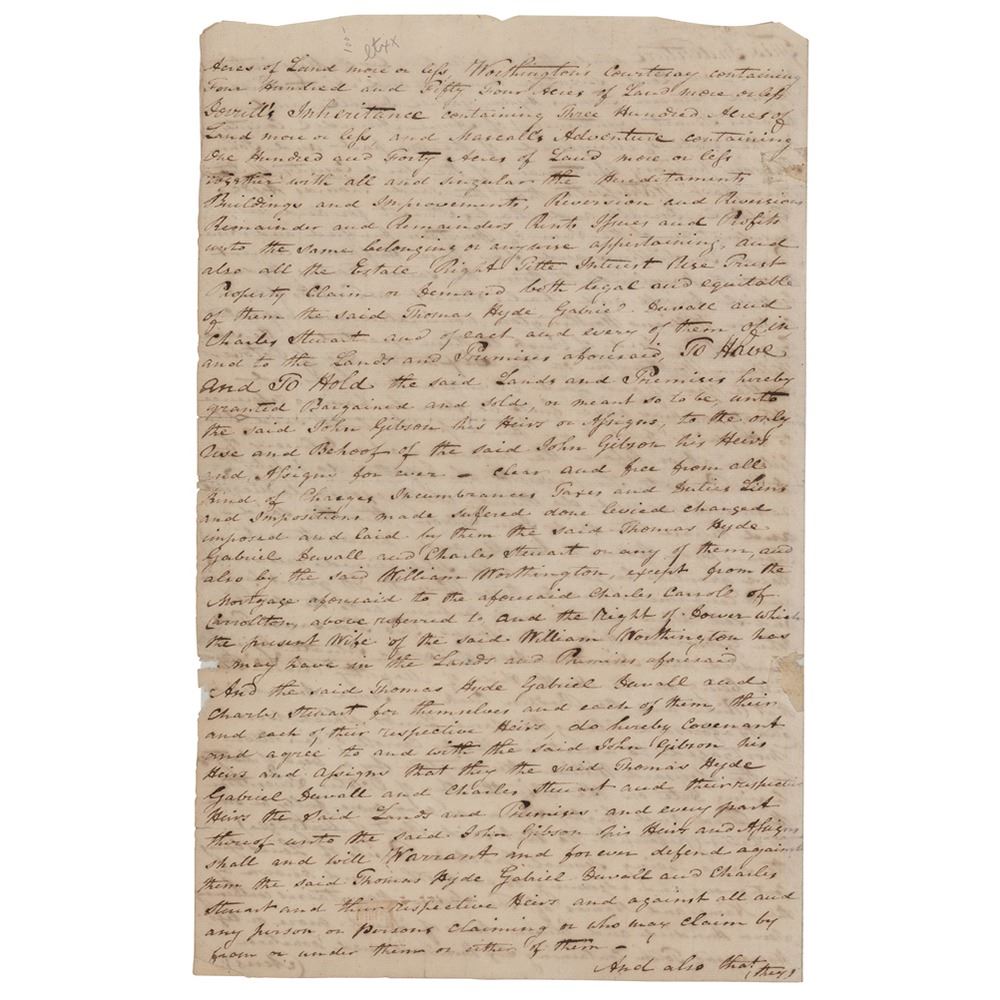 Acres of Land more or less, Worthington's Courtesay containing
Four Hundred and Fifty Four Acres of Land more or less
Dorrill's Inheritance containing Three Hundred Acres of
Land more or less, and Mascalls Adventure containing
One Hundred and Forty Acres of Land more or less
together with all and singular the Hereditaments
Buildings and Improvements, Reversion and Reversions
Remainder and Remainders Rents Issues and Profits
unto the same belonging or anywise appertaining, and
also all the Estate Right Title Interest Use Trust
Property Claim or Demand both legal and equitable
of them the said Thomas Hyde Gabriel Duvall and
Charles Steuart and of each and every of them of in
and to the Lands and Premises aforesaid, To Have
and To Hold the said Lands and Premises hereby
granted Bargained and sold, or meant so to be, unto
the said John Gibson his Heirs or Assigns, to the only
Use and Behoof of the said John Gibson his Heirs
and Assigns for ever – clear and free from all
Kind of Charges Incumbrances Taxes and Duties Liens
and Impositions made suffered done levied charged
imposed and laid by them the said Thomas Hyde
Gabriel Duvall and Charles Steuart or any of them, and
also by the said William Worthington, except from the
Mortgage aforesaid to the aforesaid Charles Carroll of
Carrollton, above referred to and the Right of Dower which
the present Wife of the said William Worthington has
may have in the Lands and Premises aforesaid
And the said Thomas Hyde Gabriel Duvall and
Charles Steuart for themselves and each of them, their
and each of their respective Heirs, do hereby Covenant
and agree to and with the said John Gibson his
Heirs and Assigns that they the said Thomas Hyde
Gabriel Duvall and Charles Steuart and their respective
Heirs the said Lands and Premises and every part
thereof unto the said John Gibson his Heirs and Assigns
shall and will Warrant and for ever defend against
them the said Thomas Hyde Gabriel Duvall and Charles
Steuart and their respective Heirs and against all and
any person or Persons claiming or who may claim by
from or under them or either of them –
And also that they